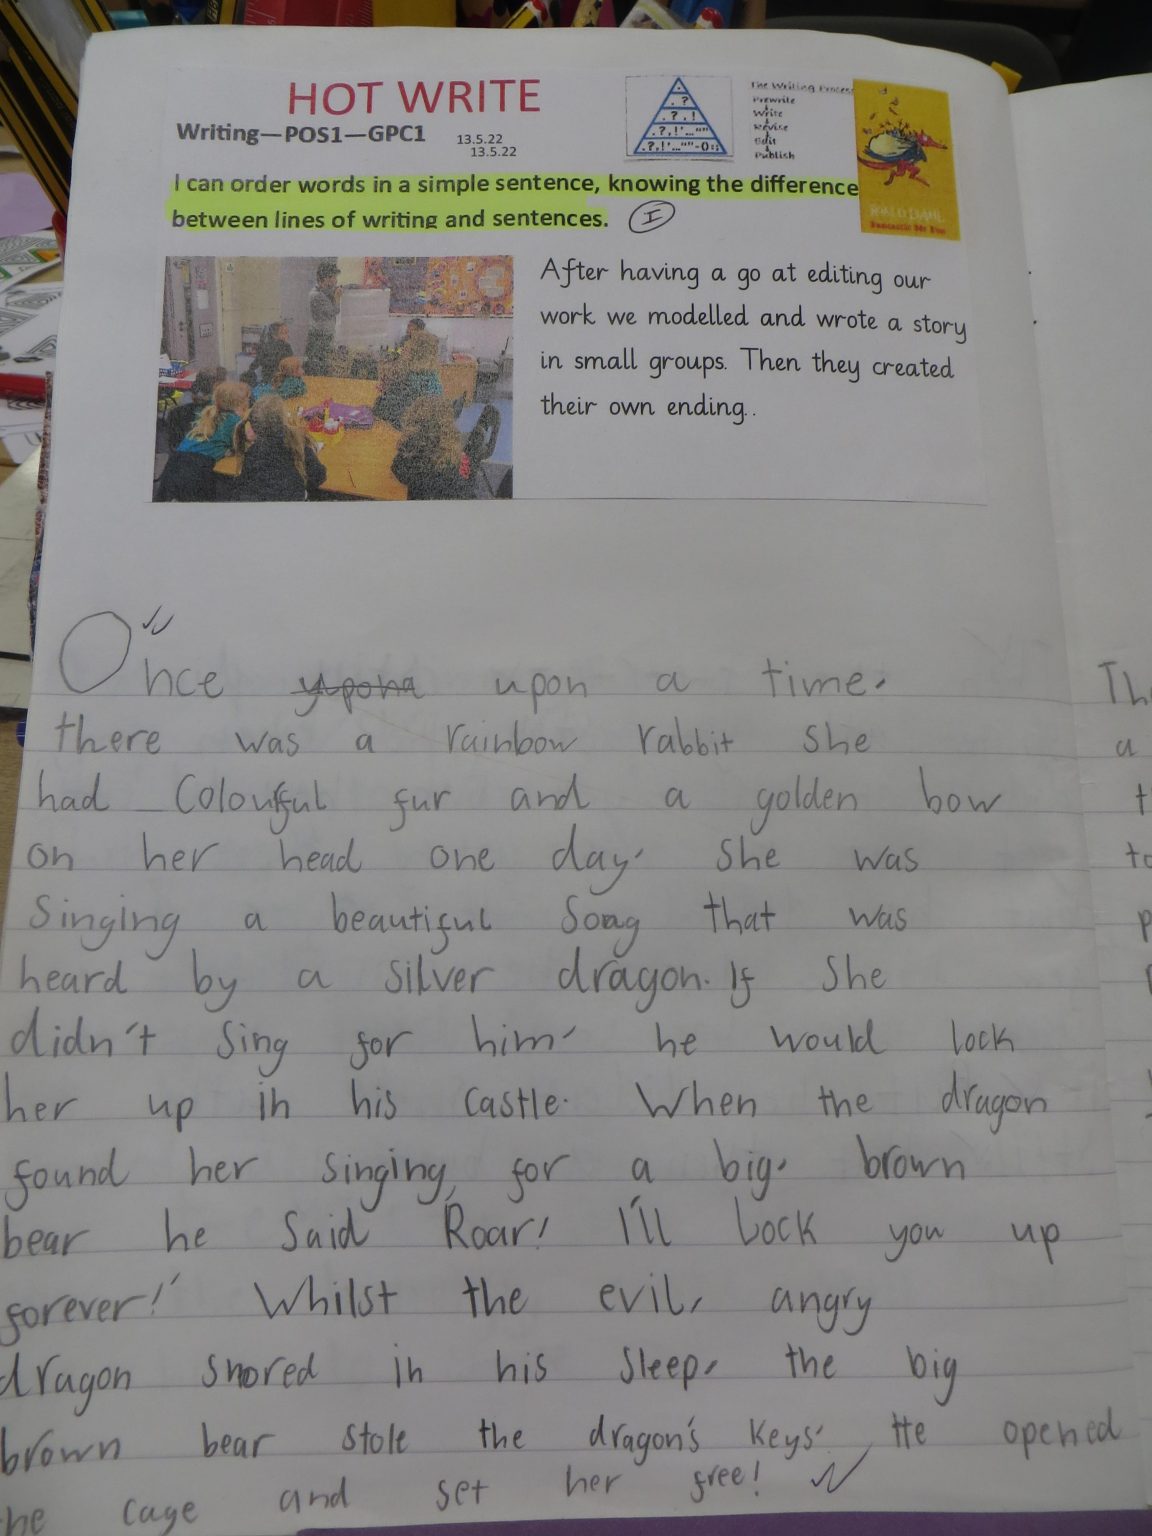 HOT WRITE
Writing—POS1—GPC1
13.5.22
13.5.22
. ?
. ? , !
. ? , ! ' ... " "
. ? , ! ' ... " " - ( ) : ;
The Writing Process
Prewrite
Write
Revise
Edit
Publish
ROALD DAHL
Fantastic Mr Fox
I can order words in a simple sentence, knowing the difference
between lines of writing and sentences. I
After having a go at editing our
work we modelled and wrote a story
in small groups. Then they created
their own ending..
Once upon a time,
there was a rainbow rabbit she
had Colourful fur and a golden bow
on her head one day, She was
Singing a beautiful Song that was
heard by a silver dragon. If She
didn't Sing for him, he would lock
her up in his castle. When the dragon
found her singing, for a big, brown
bear he Said 'Roar! I'll Lock you up
forever!' Whilst the evil, angry
dragon snored in his Sleep, the big
brown bear stole the dragon's keys. He opened
he cage and set her free!
Th
a
t
to
p